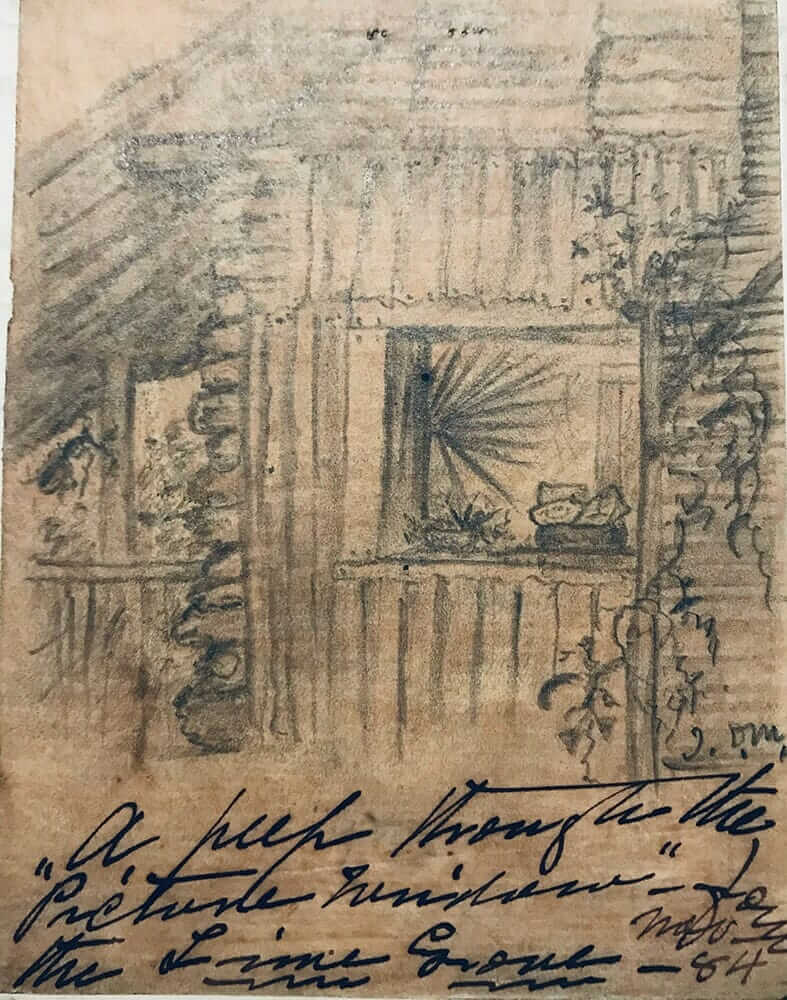 J. DM.
„A peep through the
Picture Window" - to
the Lime Grove -
84